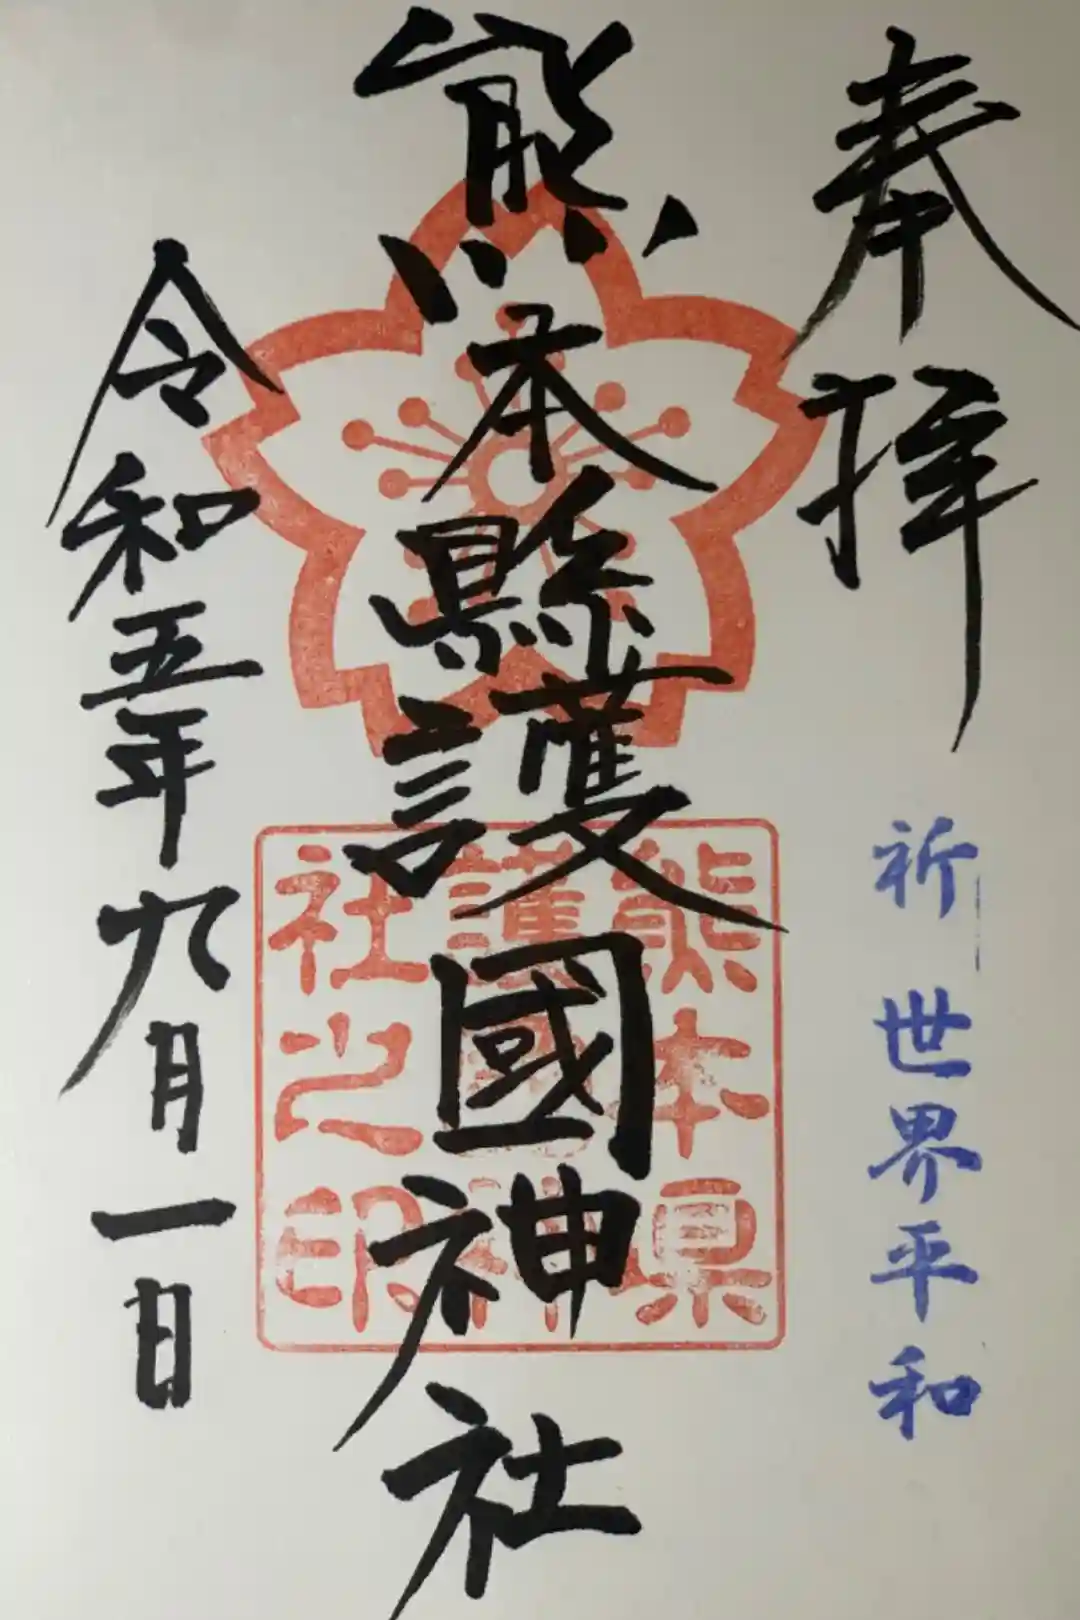 奉拝
祈 世界平和
熊本縣護國神社
熊本県
護國神
社之印
令和五年九月一日